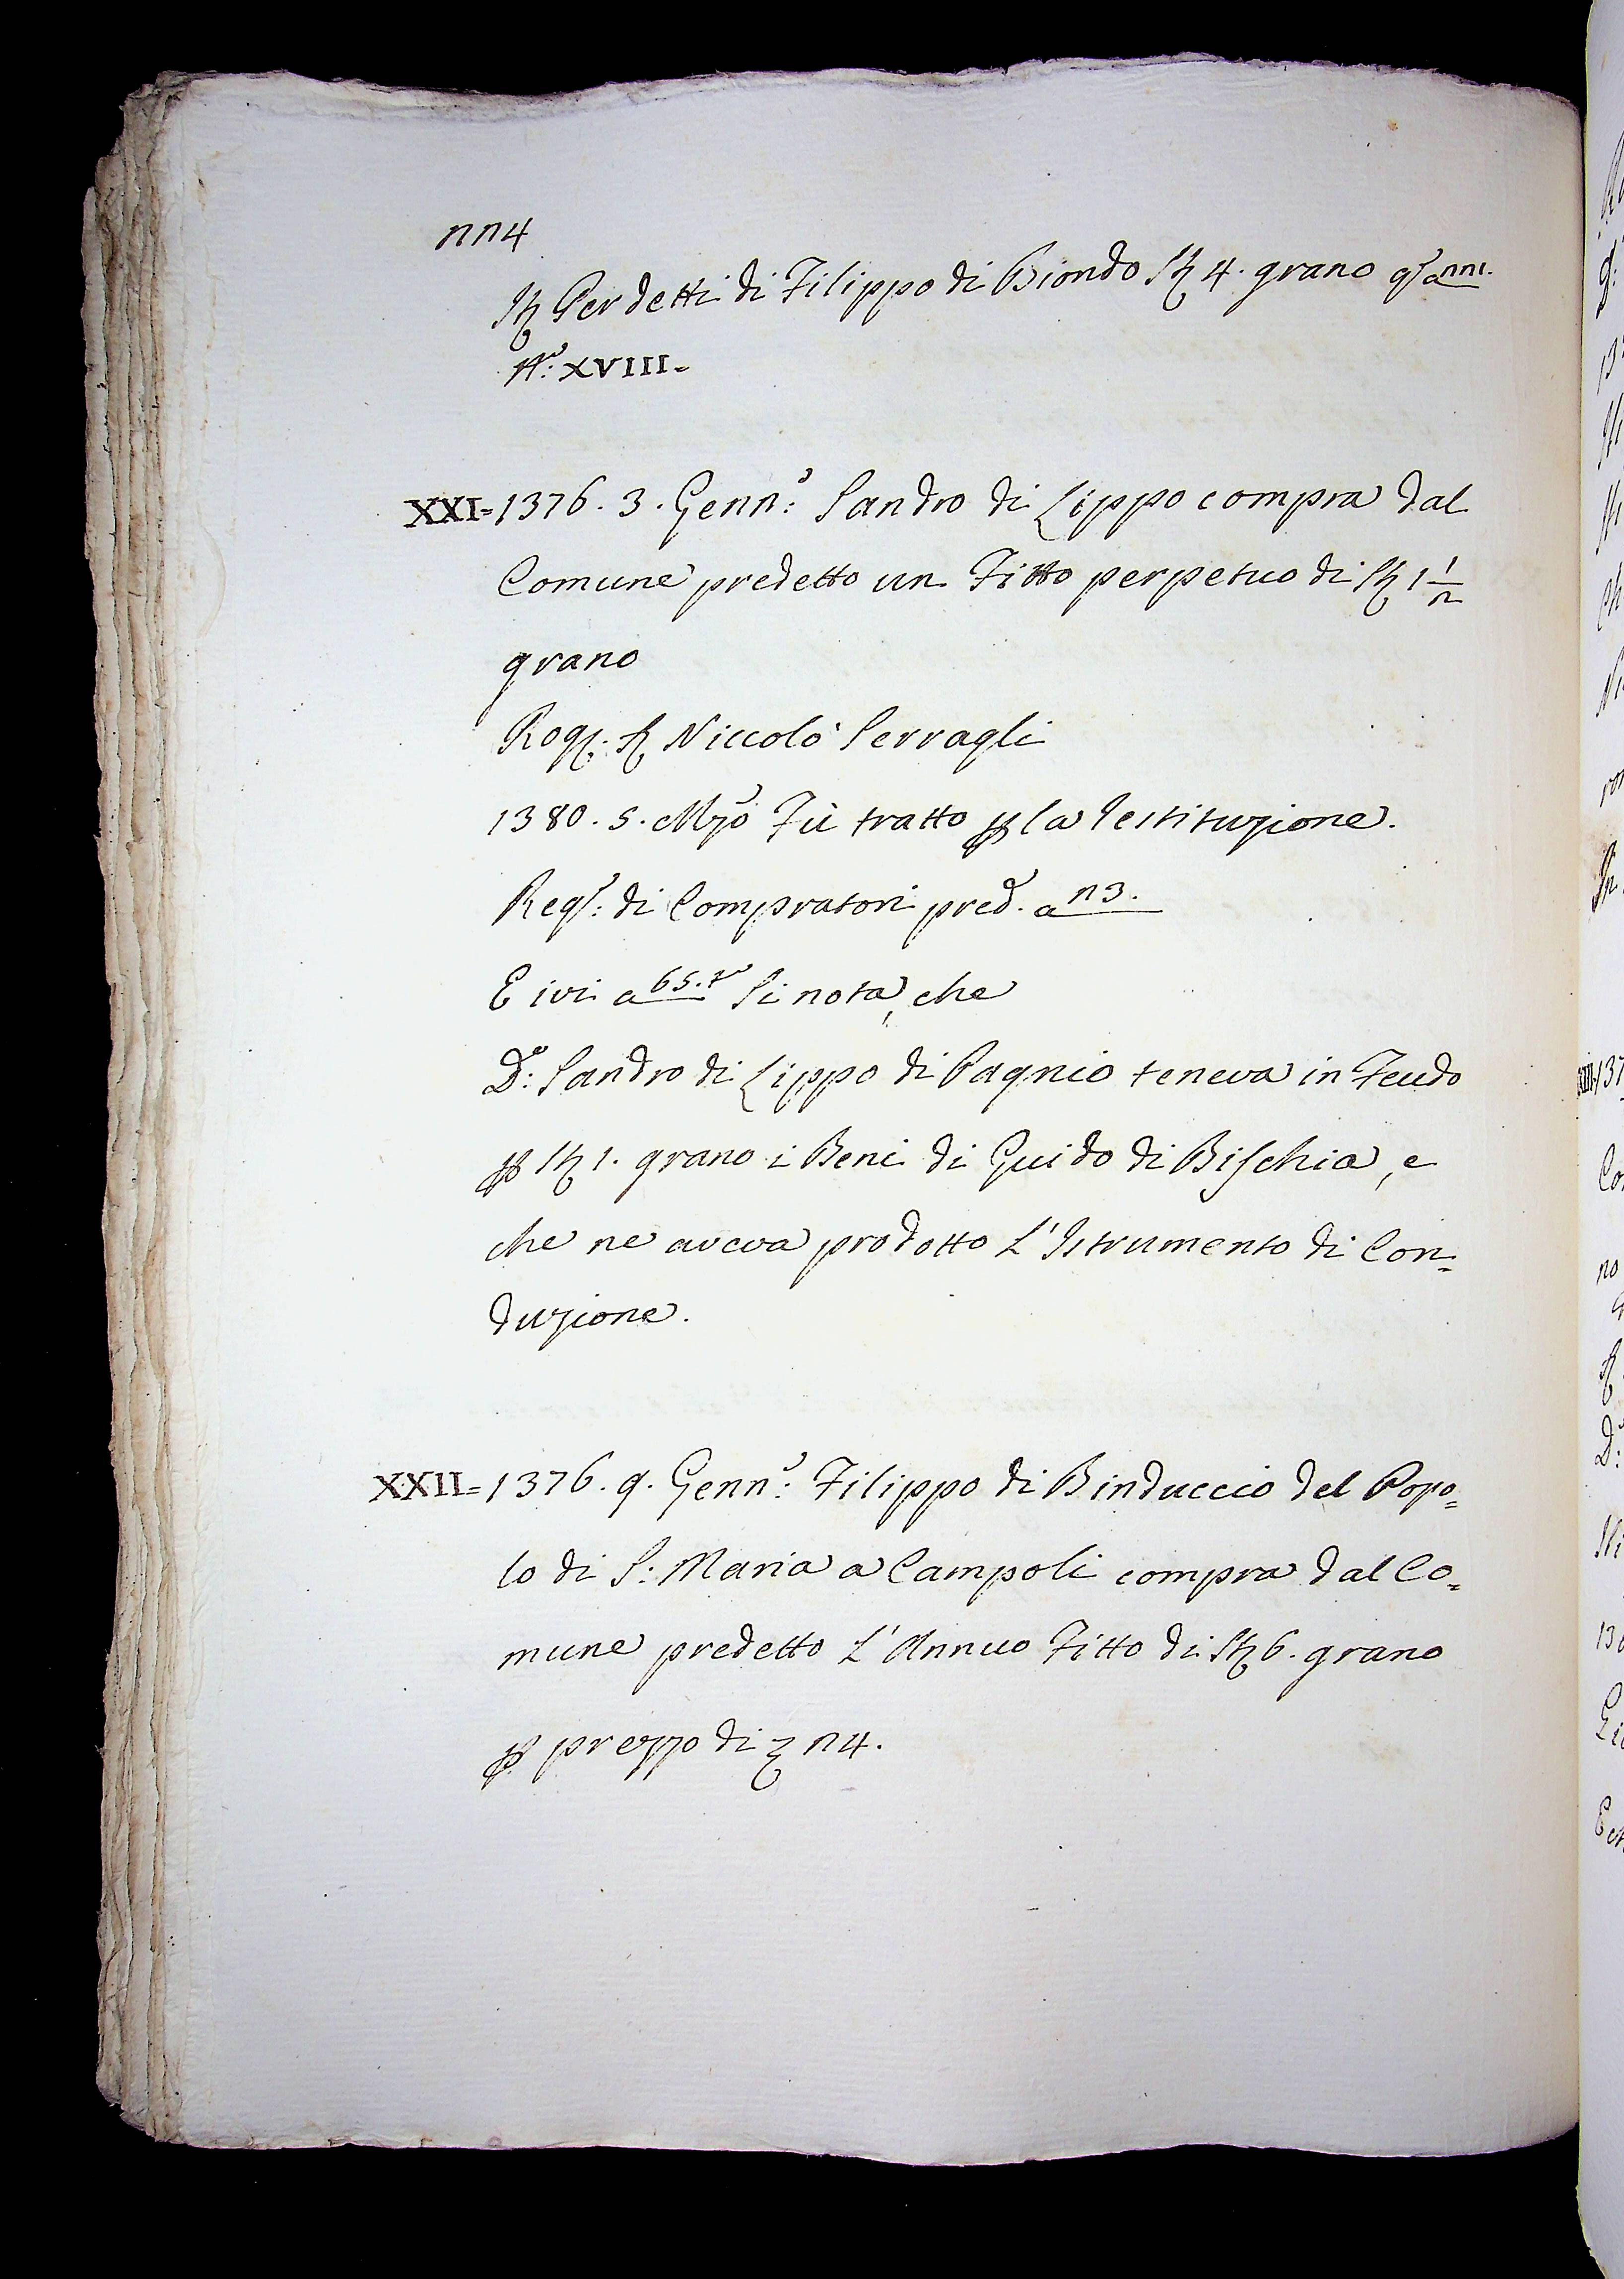 224
St Perdetti di Filippo di Biondo St 4. grano qs a 221.
N.º XVIII.
XXI=1376. 3. Genn.º Sandro di Lippo compra dal
Comune predetto un Fitto perpetuo di St 1 1/2
grano
Rog. S Niccolò Serragli
1380. 5. Mzo Fù tratto p la Restituzione.
Regs: di Compratori pred. a 23.
E ivi a 65.t Si nota, che
D.º Sandro di Lippo di Pagnio teneva in Feudo
p St 1. grano i Beni di Guido di Bischia, e
che ne aveva prodotto L'Istrumento di Con=
duzione.
XXII=1376. 9. Genn.º Filippo di Binduccio del Popo=
lo di S: Maria a Campoli compra dal Co=
mune predetto L'Annuo Fitto di St 6. grano
p prezzo di 24.